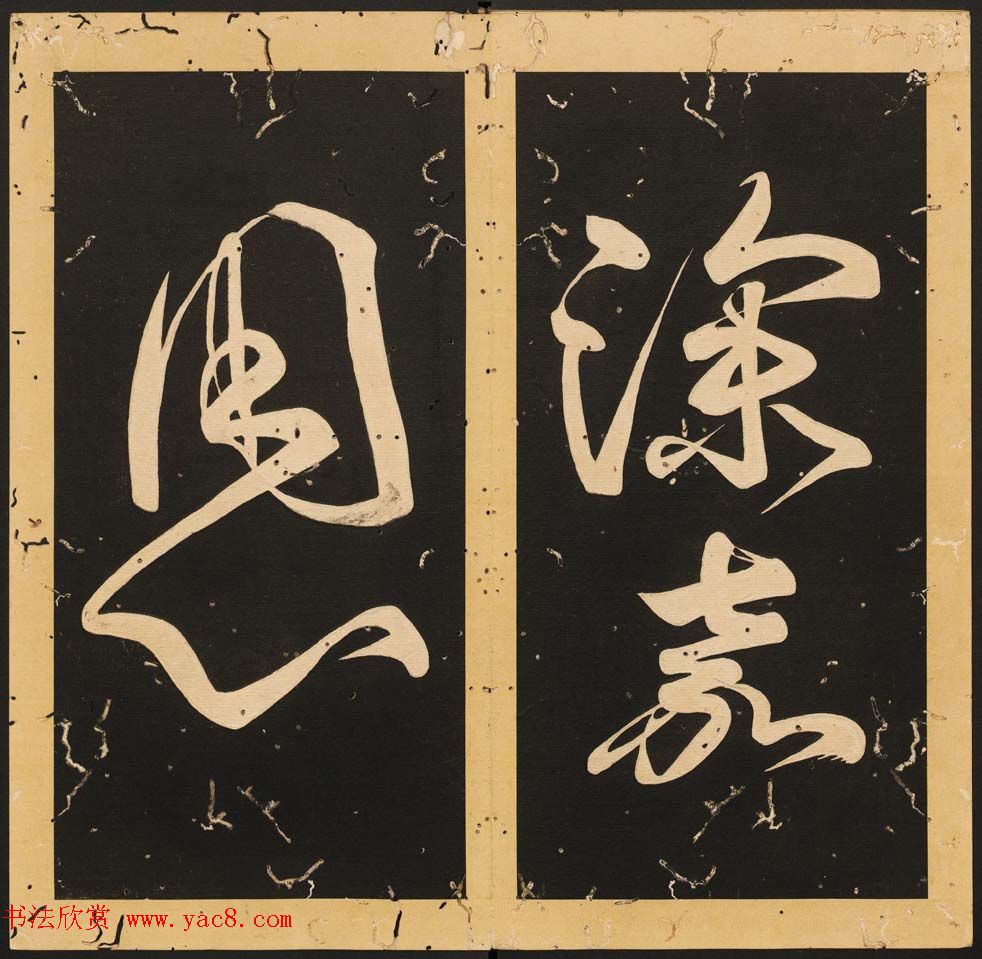 深嘉
恩
书法欣赏 www.yac8.com